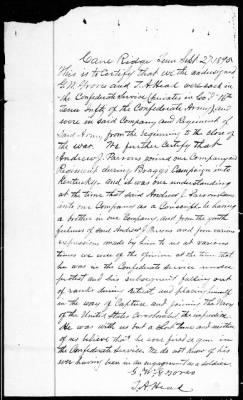 Cane Ridge Tenn Sept 27 1890
This is to Certify that we the undersigned
G. W. Groves and T. A. Head were each in
the Confederate Service (privates in Co. F 16th
Tenn Infty of the Confederate Army) and
were in said Company and Regiment of
Said Army from the beginning to the close of
the war. We further Certify that
Andrew J. Parsons joined our Company and
Regiment during Braggs Campaign into
Kentucky and it was our understanding
at the time that said Andrew J. Parsons came
into our Company as a Conscript he having
a brother in our Company and from the
of said Andrew J. Parsons and from various
expressions made by him to us at various
times we were of the opinion at the time that
he was in the Confederate Service under
protest and his subsequent falling out
of ranks during retreat and placing himself
in the way of Capture and joining the Navy
of the United States
He was with us but a short time and neither
of us believe that he ever fired a gun in
the Confederate Service. We do not know of his
ever having been in an engagement as a soldier.
G. W. Groves
T. A. Head